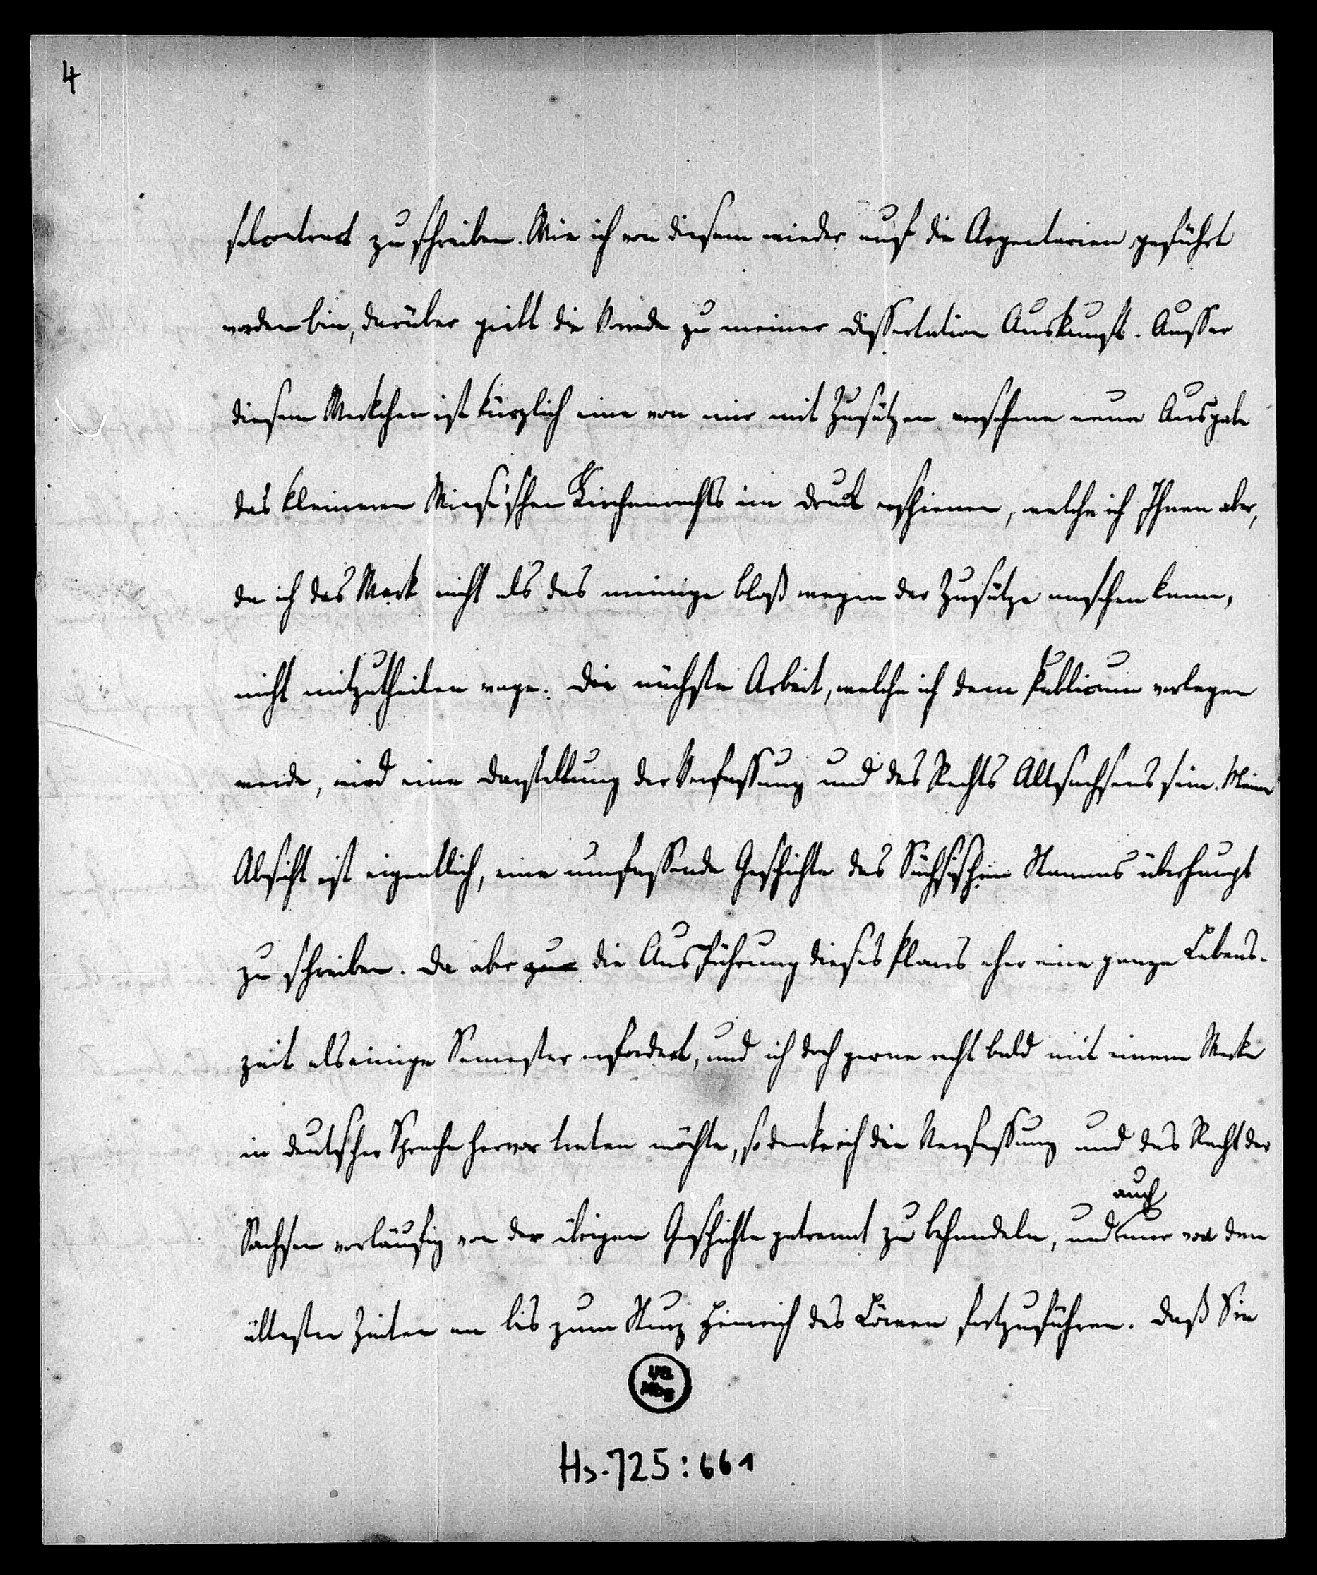 4
selcontract zu schreiben. Wie ich von diesem wieder auf die Argentarien geführt
worden bin, darüber giebt die Vorrede zu meiner Dissertation Auskunft. Ausser
diesem Werkchen ist kürzlich eine von mir mit Zusätzen versehene neue Ausgabe
des kleineren Wiesischen Kirchenrechts im Druck erschienen, welche ich Ihnen aber,
da ich das Werk nicht als das meinige bloß wegen der Zusätze ansehen kann,
nicht mitzutheilen wage. Die nächste Arbeit, welche ich dem Publicum vorlegen
werde, wird eine Darstellung der Verfassung und des Rechts Altsachsens sein. Meine
Absicht ist eigentlich, eine umfassende Geschichte des Sächsischen Stammes überhaupt
zu schreiben. Da aber zur die Ausführung dieses Plans eher eine ganze Lebens-
zeit als einige Semester erfordert, und ich doch gerne recht bald mit einem Werke
in deutscher Sprache hervor treten möchte, so denke ich die Verfassung und das Recht der
auch
Sachsen vorläufig von der übrigen Geschichte getrennt zu behandeln, und nur von den
ältesten Zeiten an bis zum Sturz Heinrich des Löwen fortzuführen. Daß Sie
UB
Mbg
Hs. 725:661